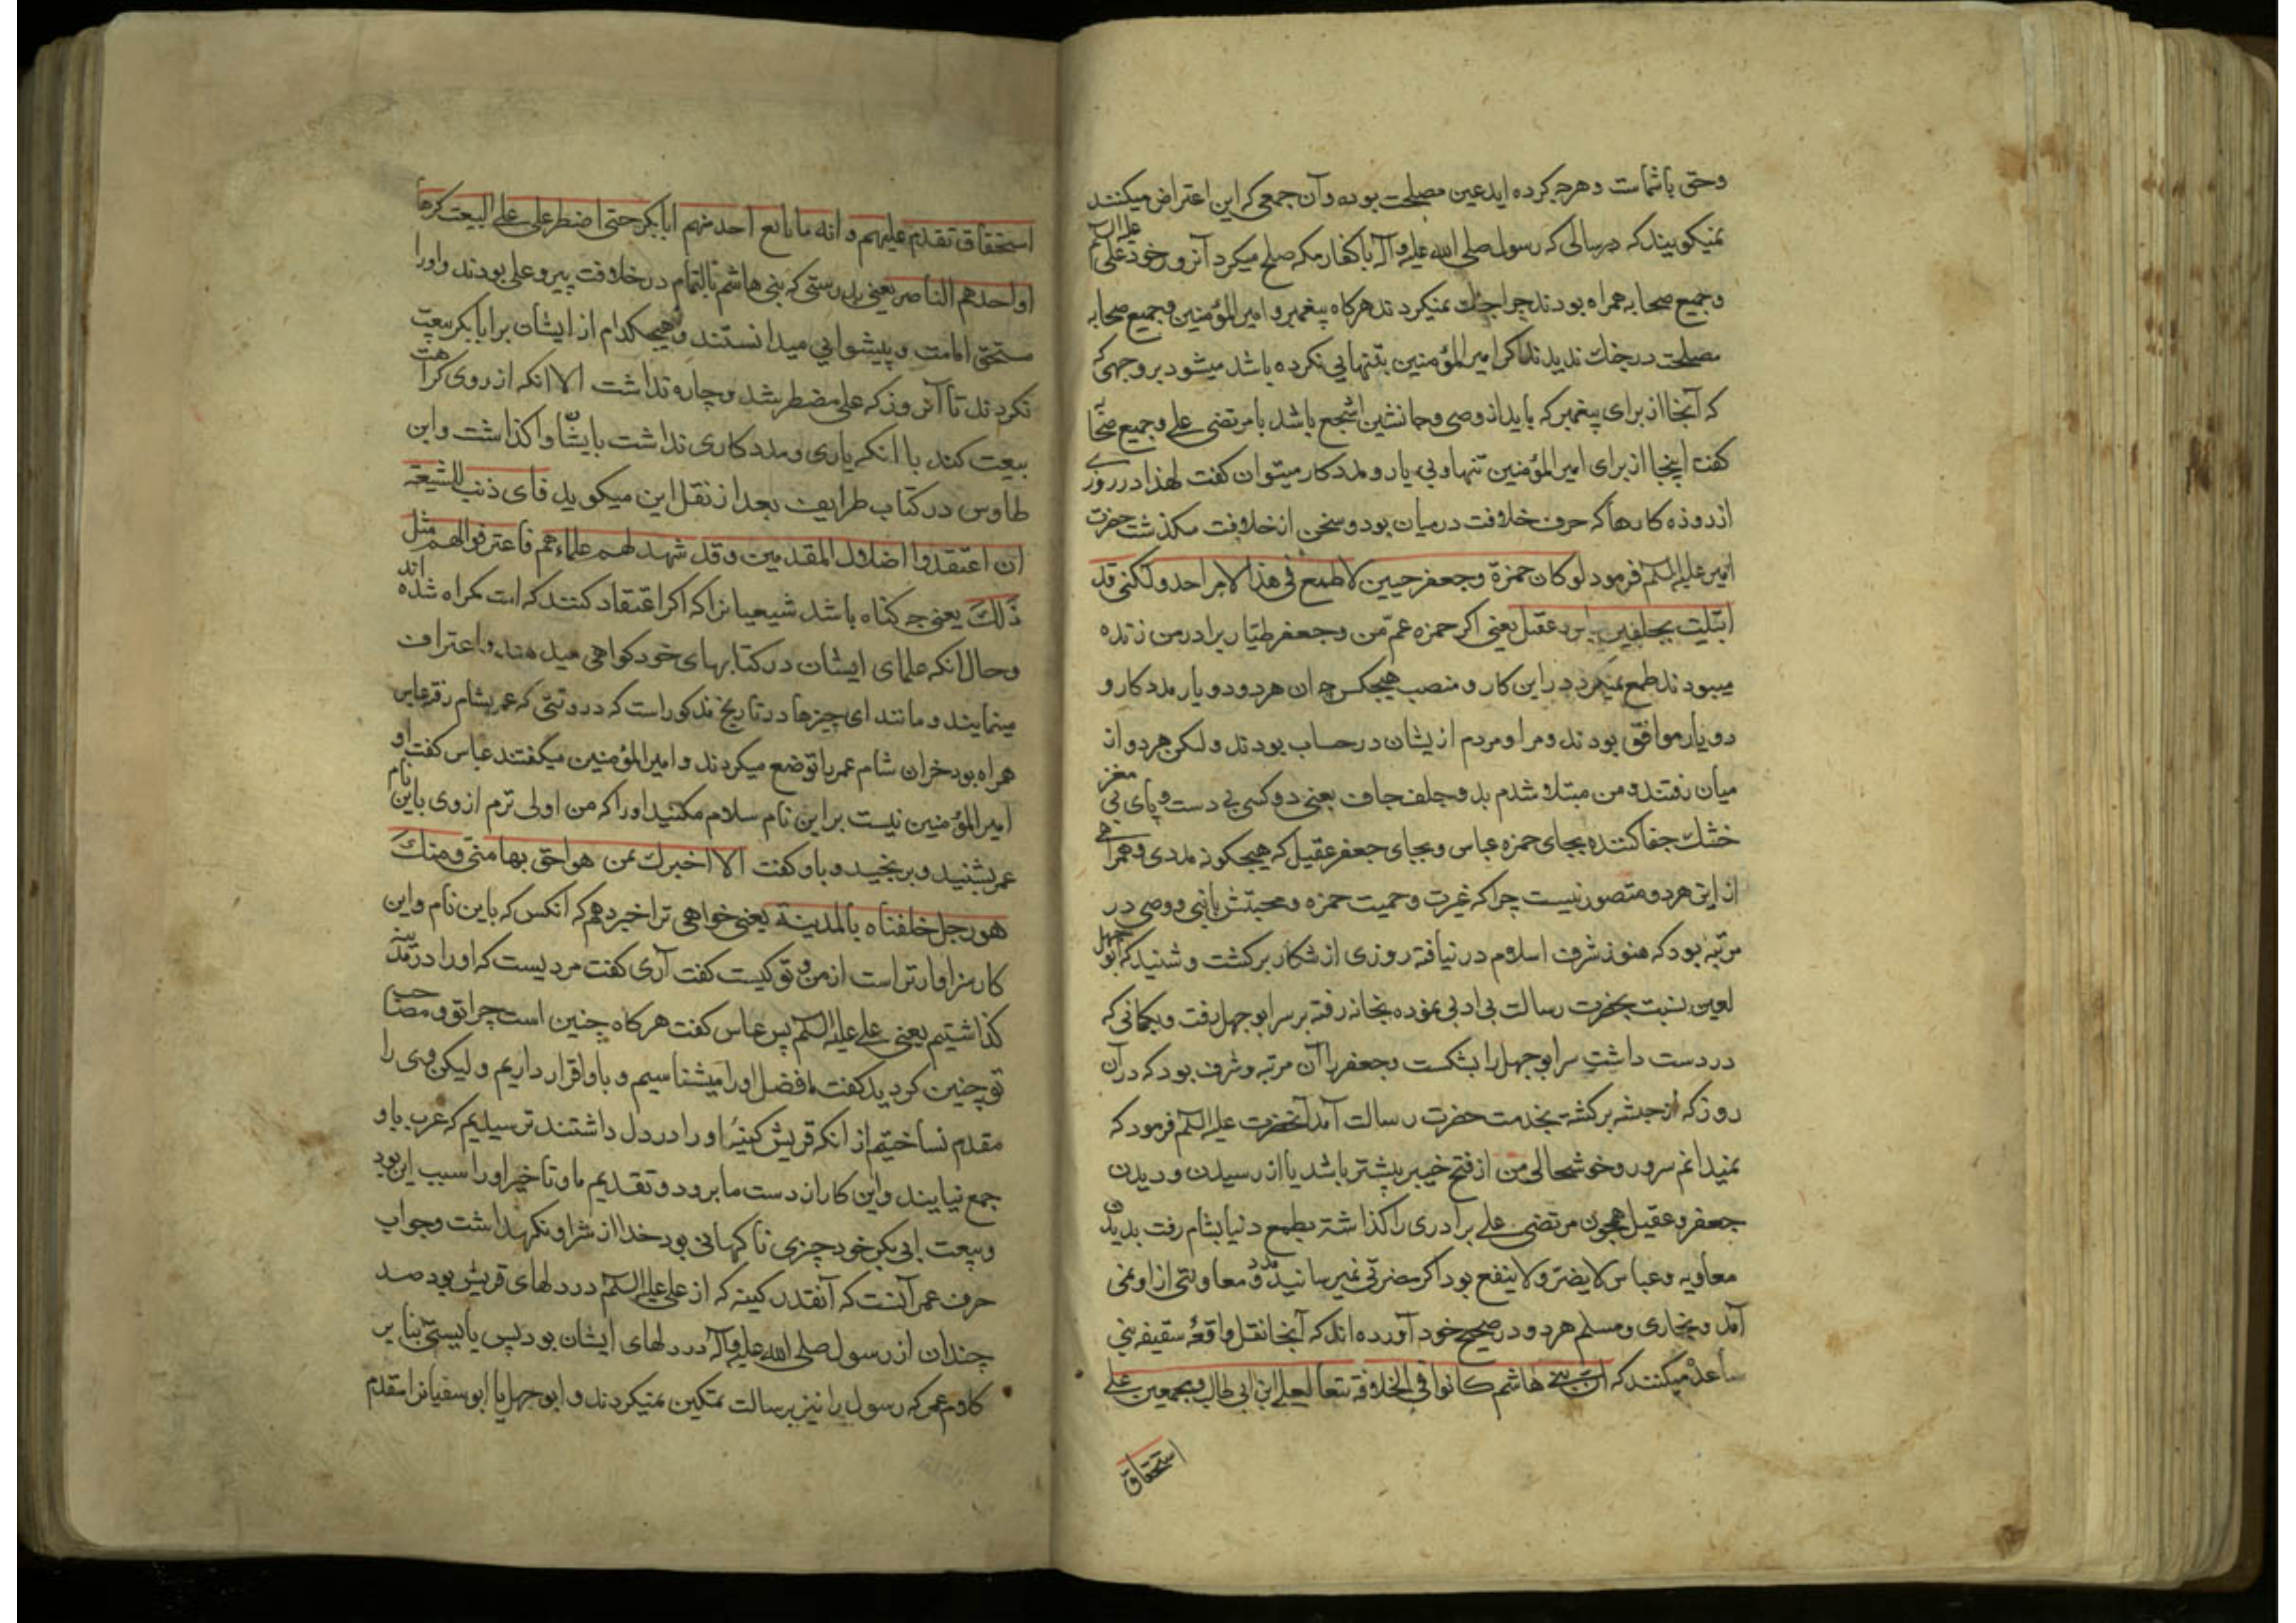 وحق باشماست و هرچه کرده اید عین مصلحت بوده و آن جمعی که این اعتراض میکنند
نمیکویند که در سالی که رسول صلی الله علیه و آله با کفار مکه صلح میکرد آنروز خود علی علیه السلام
و جمیع صحابه همراه بودند چرا جنك نمیکردند هرکاه پیغمبر و امیر المؤمنین و جمیع صحابه
مصلحت در جنك ندیدند اکر امیر المؤمنین بتنهایی نکرده باشد میشود بر وجهی که
که آنجا از برای پیغمبر که باید از وصی و جانشین اشجع باشد با مرتضی علی و جمیع صحابه
کفت اینجا از برای امیر المؤمنین تنها و بی یار و مددکار میتوان کفت لهذا در روزی
از روزه کارها که حرف خلافت در میان بود و سخن از خلافت میکذشت حضرت
امیر علیه السلم فرمود لو کان حمزة و جعفر حیین لا طمع فی هذا الامر احد ولکنی قد
ابتلیت بجلفین عباس و عقیل یعنی اکر حمزه عم من و جعفر طیار برادر من زنده
میبودند طمع نمیکرد در این کار و منصب هیچکس چه ان هر دو دو یار مددکار و
دو یار موافق بودند و مرا و مردم از یشان در حساب بودند ولکن هر دو از
میان رفتند و من مبتلا شدم بدو جلف جاف یعنی دو کس بی دست و پای بی مغز
خشك جفا کننده بجای حمزه عباس و بجای جعفر عقیل که هیچکونه مددی و همراهی
از این هر دو متصور نیست چرا که غیرت و حمیت حمزه و محبتش با نبی و وصی در
مرتبه بود که هنوز شرف اسلام در نیافته روزی از شکار برکشت و شنید که ابو جهل
لعین نسبت بحضرت رسالت بی ادبی نموده بخانه رفته بر سر ابو جهل رفت و بکمانی که
در دست داشت سر ابو جهل را بشکست و جعفر را آن مرتبه و شرف بود که در آن
روز که از حبشه برکشته بخدمت حضرت رسالت آمد آنحضرت علیه السلم فرمود که
نمیدانم سرور و خوشحالی من از فتح خیبر بیشتر باشد یا از رسیدن و دیدن
جعفر و عقیل همچون مرتضی علی برادری را کذاشته بطمع دنیا بشام رفت بدیدن
معاویه و عباس لا یضر و لا ینفع بود اکر مضرتی نمیرسانید مدد و معاونتی از او نمی
آمد و بخاری و مسلم هر دو در صحیح خود آورده اند که آنجا نقل واقعهٔ سقیفه بنی
ساعده میکنند که ان بنی هاشم کانوا فی الخلافة تبعا لعلی ابن ابی طالب و مجمعین علی
استحقاق
استحقاق تقدم علیهم و انه ما بایع احد منهم ابا بکر حتی اضطر علی علی البیعت کرها
او احدهم الناصر یعنی بدرستی که بنی هاشم بالتمام در خلافت پیرو علی بودند و او را
مستحق امامت و پیشوایی میدانستند و هیچکدام از ایشان بر ابا بکر بیعت
نکردند تا آنروز که علی مضطر شد و چاره نداشت الا انکه از روی کراهت
بیعت کند با انکه یاری و مددکاری نداشت بایشان واکذاشت و ابن
طاوس در کتاب طرایف بعد از نقل این میکوید فای ذنب للشیعه
ان اعتقدوا اضلال المقدمین و قد شهد لهم علماءهم فاعترفوا لهم مثل
ذلك یعنی چه کناه باشد شیعیانرا که اکر اعتقاد کنند که امت کمراه شده اند
و حال انکه علمای ایشان در کتابهای خود کواهی میدهند و اعتراف
مینمایند و مانند ای چیزها در تاریخ مذکور است که در وقتی که عمر بشام رفت عباس
همراه بود خران شام عمر را تواضع میکردند و امیر المؤمنین میگفتند عباس کفت او
امیر المؤمنین نیست بر این نام سلام مکنید او را که من اولی ترم از وی باین نام
عمر بشنید و برنجید و باو کفت الا اخبرك بمن هو احق بها منی و منك
هو رجل خلفناه بالمدینة یعنی خواهی ترا خبر دهم که آنکس که باین نام و این
کار سزاوارتر است از من و تو کیست کفت آری کفت مردیست که او را در مدینه
کذاشتیم یعنی علی علیه السلم پس عباس کفت هرکاه چنین است چرا تو و صاحب
تو چنین کردید کفت ما فضل او را میشناسیم و باو اقرار داریم ولیکن وی را
مقدم نساختیم از انکه قریش کینهٔ او را در دل داشتند ترسیدیم که عرب باو
جمع نیایند و این کار از دست ما برود و تقدیم ما و تاخیر او را سبب این بود
و بیعت ابی بکر خود چیزی ناکهانی بود خدا از شر او نکهداشت و جواب
حرف عمر آنست که آنقدر کینه که از علی علیه السلم در دلهای قریش بود صد
چندان از رسول صلی الله علیه و آله در دلهای ایشان بود پس بایستی بنا بر
کلام عمر که رسول را نیز برسالت تمکین نمیکردند و ابو جهل یا ابو سفیانرا مقدم